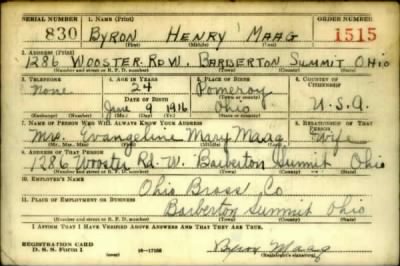 SERIAL NUMBER 1. NAME (Print) ORDER NUMBER
830 BYRON HENRY MAAG 1515
(First) (Middle) (Last)
2. ADDRESS (Print)
1286 WOOSTER. RD W. BARBERTON SUMMIT OHIO
(Number and street or R. F. D. number) (Town) (County) (State)
3. TELEPHONE 4. AGE IN YEARS 5. PLACE OF BIRTH 6. COUNTRY OF CITIZENSHIP
None 24 Pomeroy
DATE OF BIRTH (Town or county)
June 9 1916 Ohio U.S.A.
(Exchange) (Number) (Mo.) (Day) (Yr.) (State or country)
7. NAME OF PERSON WHO WILL ALWAYS KNOW YOUR ADDRESS 8. RELATIONSHIP OF THAT PERSON
Mrs. Evangeline Mary Maag Wife
(Mr., Mrs., Miss) (First) (Middle) (Last)
9. ADDRESS OF THAT PERSON
1286 Wooster Rd. W. Barberton Summit Ohio
(Number and street or R. F. D. number) (Town) (County) (State)
10. EMPLOYER'S NAME
Ohio Brass Co
11. PLACE OF EMPLOYMENT OR BUSINESS
Barberton Summit Ohio
(Number and street or R. F. D. number) (Town) (County) (State)
I AFFIRM THAT I HAVE VERIFIED ABOVE ANSWERS AND THAT THEY ARE TRUE.
REGISTRATION CARD
D. S. S. Form 1 16-17105 Byron Maag
(Registrant's signature)